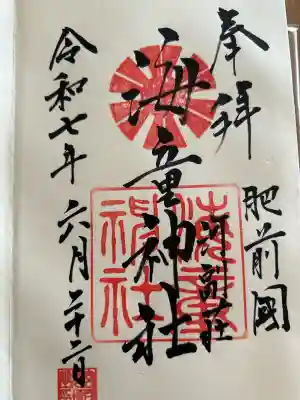 奉拝
肥前國
河副荘
海童神社
令和七年六月二十二日
海童神社